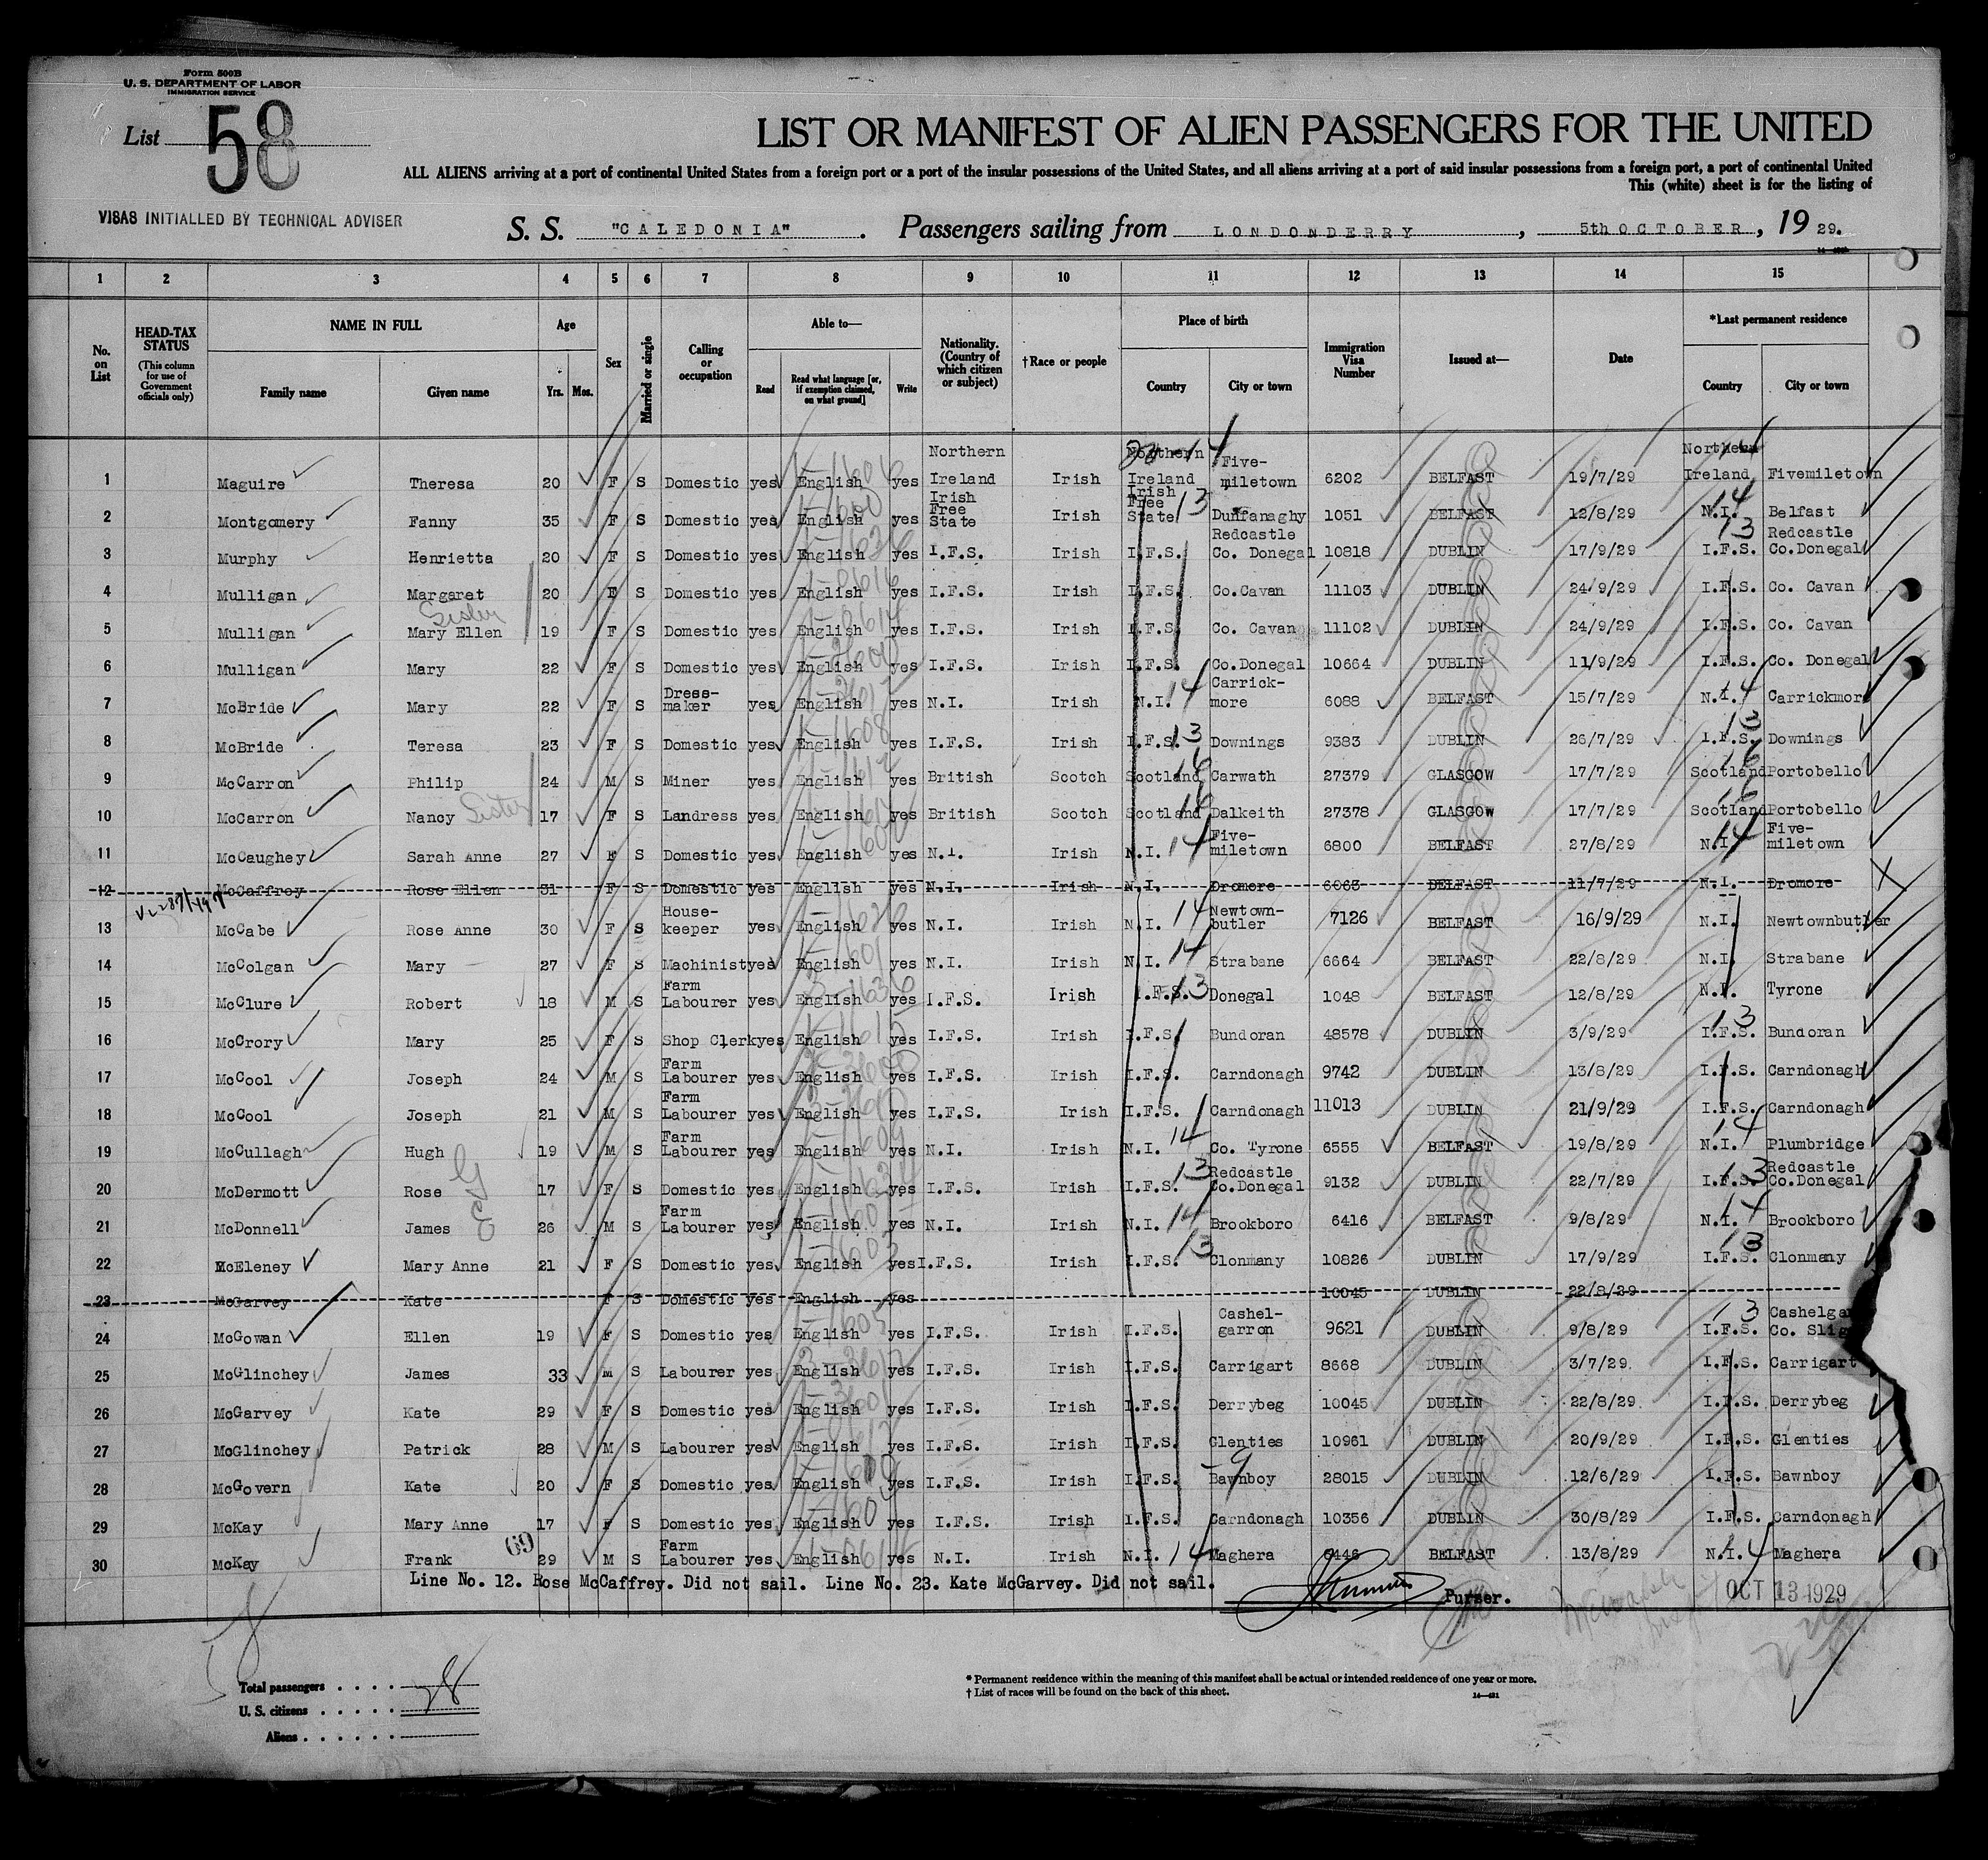 Form 500B
U. S. DEPARTMENT OF LABOR
IMMIGRATION SERVICE
List 58
LIST OR MANIFEST OF ALIEN PASSENGERS FOR THE UNITED
ALL ALIENS arriving at a port of continental United States from a foreign port or a port of the insular possessions of the United States, and all aliens arriving at a port of said insular possessions from a foreign port, a port of continental United
This (white) sheet is for the listing of
VISAS INITIALLED BY TECHNICAL ADVISER
S. S. "CALEDONIA". Passengers sailing from LONDONDERRY, 5th OCTOBER, 19 29.
1 2 3 4 5 6 7 8 9 10 11 12 13 14 15
No. on List
HEAD-TAX STATUS (This column for use of Government officials only)
NAME IN FULL Family name Given name
Age Yrs. Mos.
Sex
Married or single
Calling or occupation
Able to— Read Read what language [or, if exemption claimed, on what ground] Write
Nationality. (Country of which citizen or subject)
†Race or people
Place of birth Country City or town
Immigration Visa Number
Issued at—
Date
*Last permanent residence Country City or town
1 Maguire Theresa 20 F S Domestic yes English yes Northern Ireland Irish Northern Ireland Five-miletown 6202 BELFAST 19/7/29 Northern Ireland Fivemiletown
2 Montgomery Fanny 35 F S Domestic yes English yes Irish Free State Irish Irish Free State Dunfanaghy 1051 BELFAST 12/8/29 N.I. Belfast
3 Murphy Henrietta 20 F S Domestic yes English yes I.F.S. Irish I.F.S. Redcastle Co. Donegal 10818 DUBLIN 17/9/29 I.F.S. Redcastle Co.Donegal
4 Mulligan Margaret 20 F S Domestic yes English yes I.F.S. Irish I.F.S. Co.Cavan 11103 DUBLIN 24/9/29 I.F.S. Co. Cavan
Sister
5 Mulligan Mary Ellen 19 F S Domestic yes English yes I.F.S. Irish I.F.S. Co. Cavan 11102 DUBLIN 24/9/29 I.F.S. Co. Cavan
6 Mulligan Mary 22 F S Domestic yes English yes I.F.S. Irish I.F.S. Co.Donegal 10664 DUBLIN 11/9/29 I.F.S. Co. Donegal
7 McBride Mary 22 F S Dress-maker yes English yes N.I. Irish N.I. Carrick-more 6088 BELFAST 15/7/29 N.I. Carrickmore
8 McBride Teresa 23 F S Domestic yes English yes I.F.S. Irish I.F.S. Downings 9383 DUBLIN 26/7/29 I.F.S. Downings
9 McCarron Philip 24 M S Miner yes English yes British Scotch Scotland Carwath 27379 GLASGOW 17/7/29 Scotland Portobello
10 McCarron Nancy Sister 17 F S Landress yes English yes British Scotch Scotland Dalkeith 27378 GLASGOW 17/7/29 Scotland Portobello
11 McCaughey Sarah Anne 27 F S Domestic yes English yes N.I. Irish N.I. Five-miletown 6800 BELFAST 27/8/29 N.I. Five-miletown
12 McCaffrey Rose Ellen 31 F S Domestic yes English yes N.I. Irish N.I. Dromore 6063 BELFAST 11/7/29 N.I. Dromore
13 McCabe Rose Anne 30 F S House-keeper yes English yes N.I. Irish N.I. Newtown-butler 7126 BELFAST 16/9/29 N.I. Newtownbutler
14 McColgan Mary 27 F S Machinist yes English yes N.I. Irish N.I. Strabane 6664 BELFAST 22/8/29 N.I. Strabane
15 McClure Robert 18 M S Farm Labourer yes English yes I.F.S. Irish I.F.S. Donegal 1048 BELFAST 12/8/29 N.I. Tyrone
16 McCrory Mary 25 F S Shop Clerk yes English yes I.F.S. Irish I.F.S. Bundoran 48578 DUBLIN 3/9/29 I.F.S. Bundoran
17 McCool Joseph 24 M S Farm Labourer yes English yes I.F.S. Irish I.F.S. Carndonagh 9742 DUBLIN 13/8/29 I.F.S. Carndonagh
18 McCool Joseph 21 M S Farm Labourer yes English yes I.F.S. Irish I.F.S. Carndonagh 11013 DUBLIN 21/9/29 I.F.S. Carndonagh
19 McCullagh Hugh 19 M S Farm Labourer yes English yes N.I. Irish N.I. Co. Tyrone 6555 BELFAST 19/8/29 N.I. Plumbridge
20 McDermott Rose 17 F S Domestic yes English yes I.F.S. Irish I.F.S. Redcastle Co.Donegal 9132 DUBLIN 22/7/29 I.F.S. Redcastle Co.Donegal
21 McDonnell James 26 M S Farm Labourer yes English yes N.I. Irish N.I. Brookboro 6416 BELFAST 9/8/29 N.I. Brookboro
22 McEleney Mary Anne 21 F S Domestic yes English yes I.F.S. Irish I.F.S. Clonmany 10826 DUBLIN 17/9/29 I.F.S. Clonmany
23 McGarvey Kate F S Domestic yes English yes 10045 DUBLIN 22/8/29
24 McGowan Ellen 19 F S Domestic yes English yes I.F.S. Irish I.F.S. Cashel-garron 9621 DUBLIN 9/8/29 I.F.S. Co.
25 McGlinchey James 33 M S Labourer yes English yes I.F.S. Irish I.F.S. Carrigart 8668 DUBLIN 3/7/29. I.F.S. Carrigart
26 McGarvey Kate 29 F S Domestic yes English yes I.F.S. Irish I.F.S. Derrybeg 10045 DUBLIN 22/8/29 I.F.S. Derrybeg
27 McGlinchey Patrick 28 M S Labourer yes English yes I.F.S. Irish I.F.S. Glenties 10961 DUBLIN 20/9/29 I.F.S. Glenties
28 McGovern Kate 20 F S Domestic yes English yes I.F.S. Irish I.F.S. Bawnboy 28015 DUBLIN 12/6/29 I.F.S. Bawnboy
29 McKay Mary Anne 17 F S Domestic yes English yes I.F.S. Irish I.F.S. Carndonagh 10356 DUBLIN 30/8/29 I.F.S. Carndonagh
30 McKay Frank 29 M S Farm Labourer yes English yes N.I. Irish N.I. Maghera 6446 BELFAST 13/8/29 N.I. Maghera
Line No. 12. Rose McCaffrey. Did not sail. Line No. 23. Kate McGarvey. Did not sail.
Purser.
OCT 13 1929
Total passengers 28
U. S. citizens
Aliens
* Permanent residence within the meaning of this manifest shall be actual or intended residence of one year or more.
† List of races will be found on the back of this sheet.